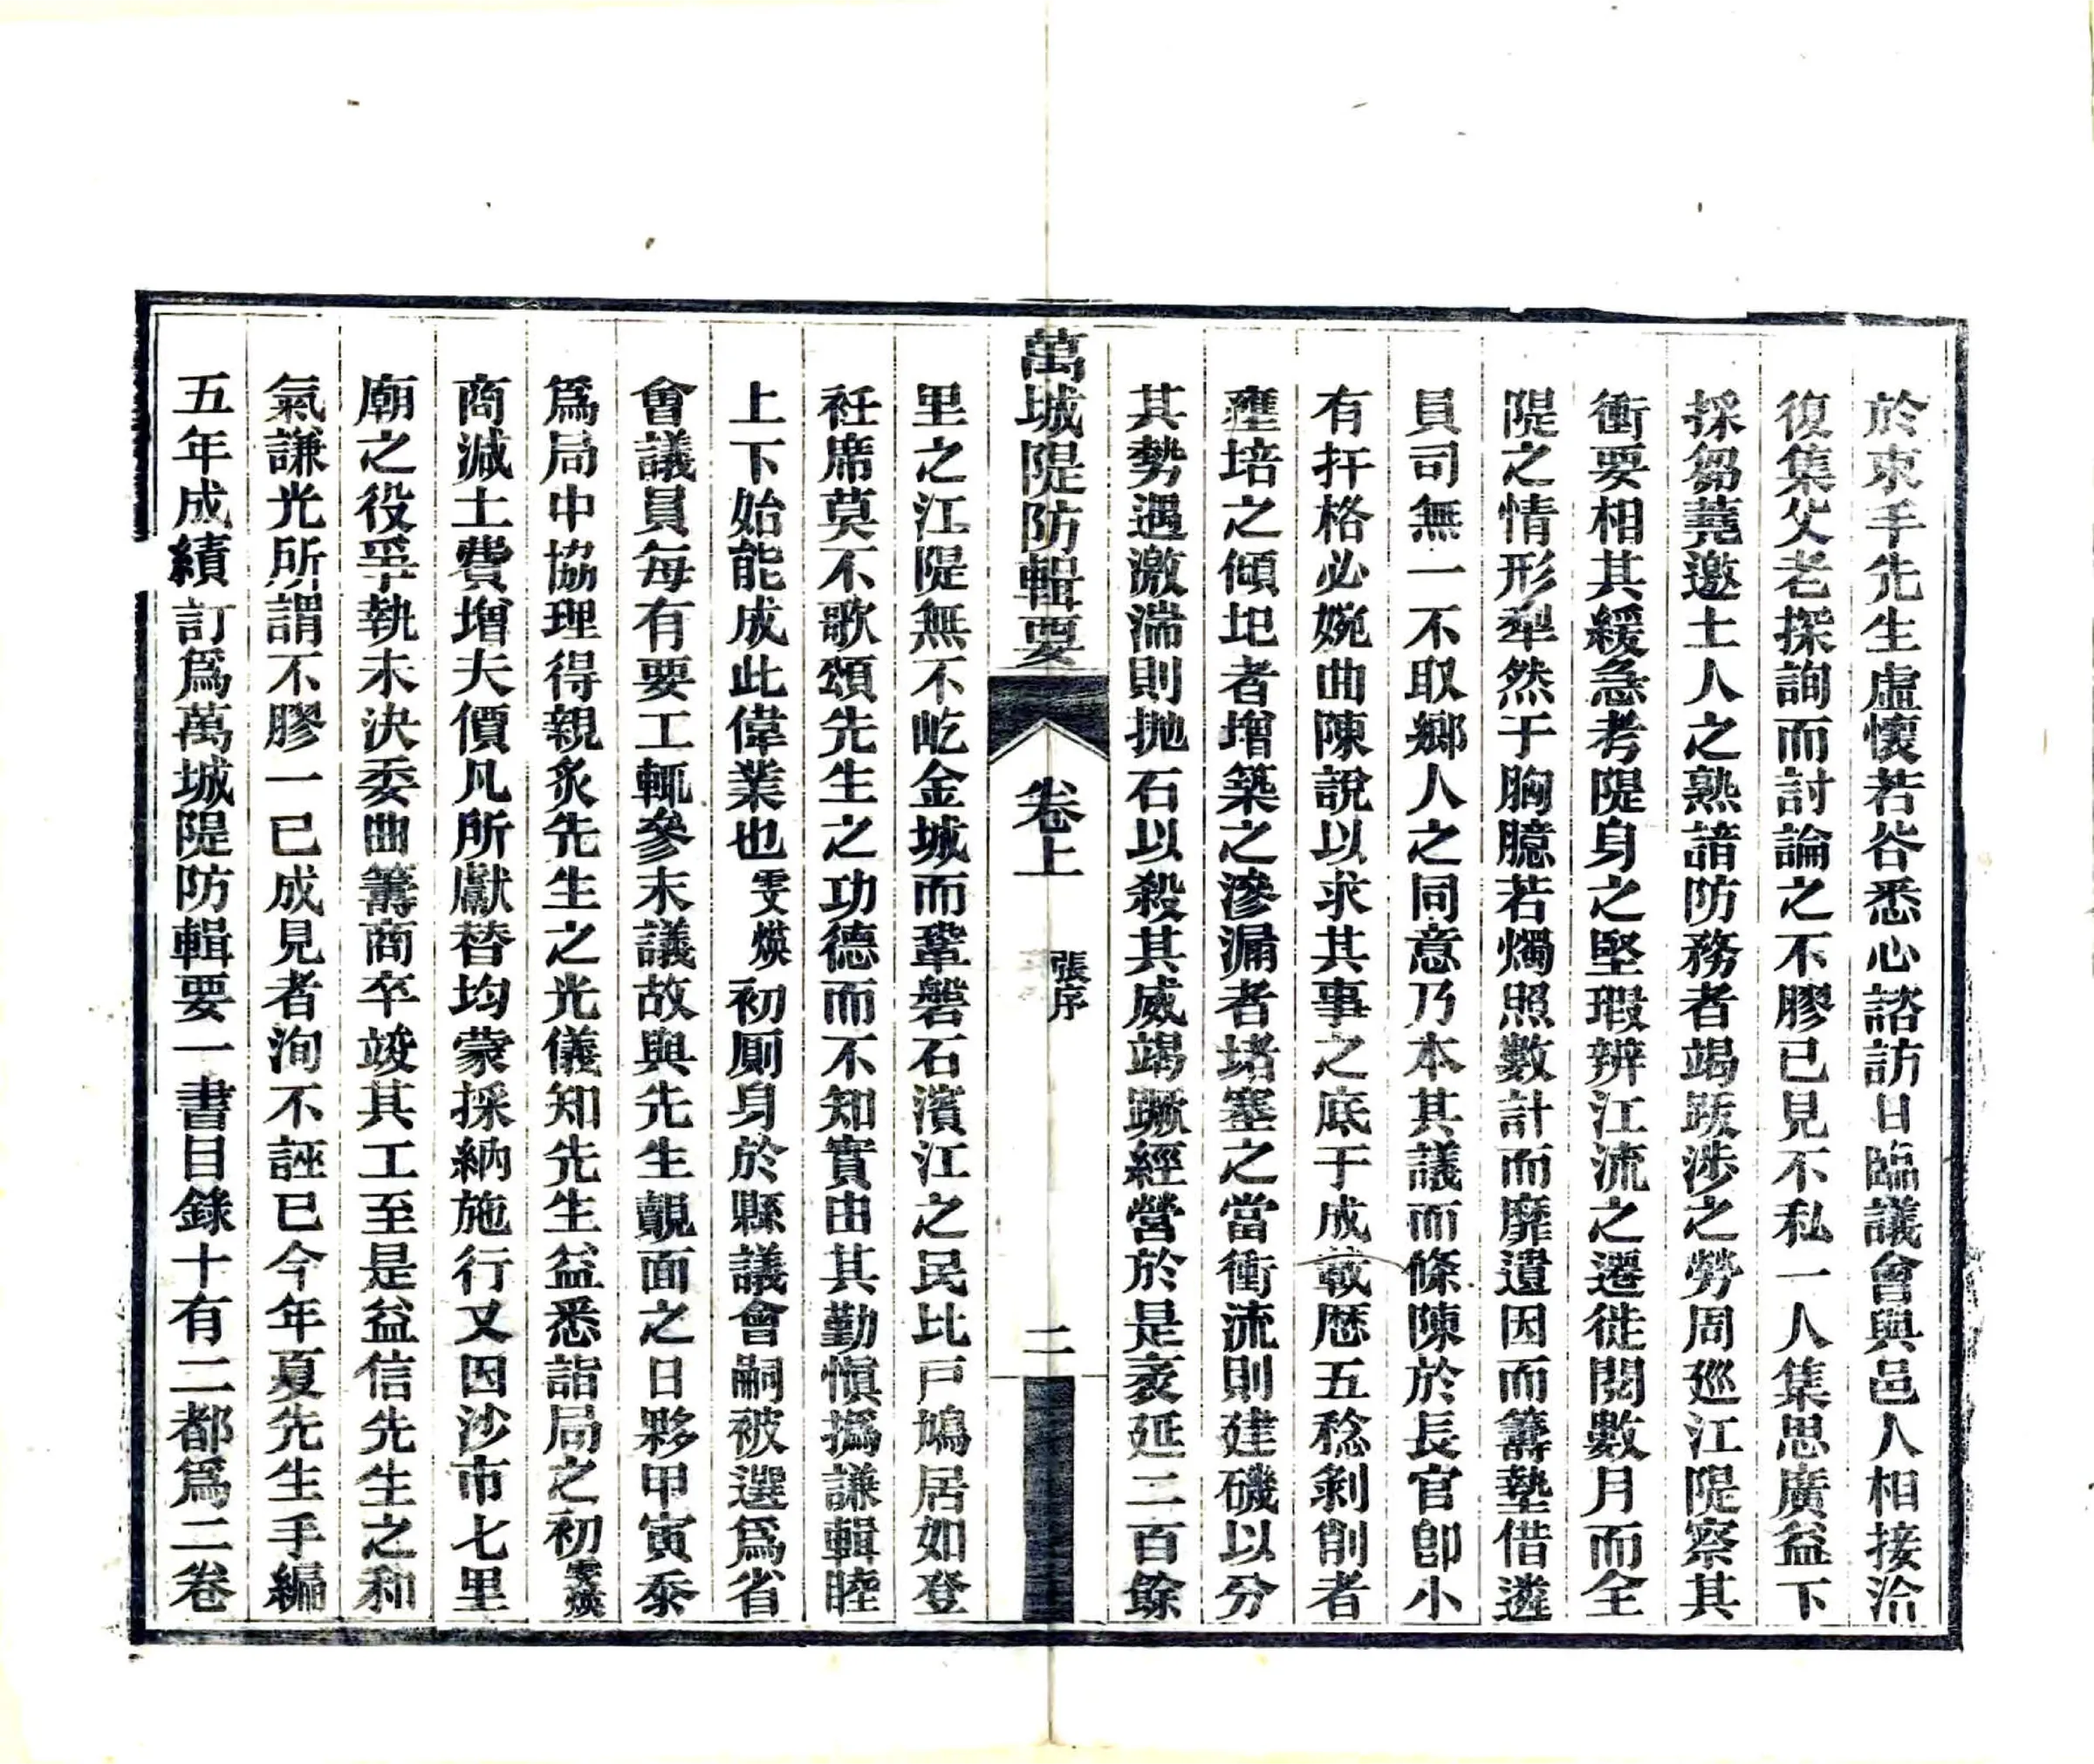 於束手先生虛懷若谷悉心諮訪日臨議會與邑人相接洽
復集父老探詢而討論之不膠已見不私一人集思廣益下
採芻蕘邀土人之熟諳防務者竭跋涉之勞周巡江隄察其
衝要相其緩急考隄身之堅瑕辨江流之遷徙閱數月而全
隄之情形犁然于胸臆若燭照數計而靡遺因而籌墊借遴
員司無一不取鄉人之同意乃本其議而條陳於長官卽小
有扞格必婉曲陳說以求其事之底于成載歷五稔剝削者
壅培之傾圯者增築之滲漏者堵塞之當衝流則建磯以分
其勢遇激湍則拋石以殺其威竭蹶經營於是袤延二百餘
萬城隄防輯要 卷上 張序 二
里之江隄無不屹金城而鞏磐石濱江之民比戸鳩居如登
衽席莫不歌頌先生之功德而不知實由其勤愼撝謙輯睦
上下始能成此偉業也雯煐初厠身於縣議會嗣被選爲省
會議員每有要工輒參末議故與先生覿面之日夥甲寅泰
爲局中協理得親炙先生之光儀知先生益悉詣局之初雯煐
商減土費增夫價凡所獻替均蒙採納施行又因沙市七里
廟之役爭執未決委曲籌商卒竣其工至是益信先生之和
氣謙光所謂不膠一已成見者洵不誣已今年夏先生手編
五年成績訂爲萬城隄防輯要一書目錄十有二都爲二卷